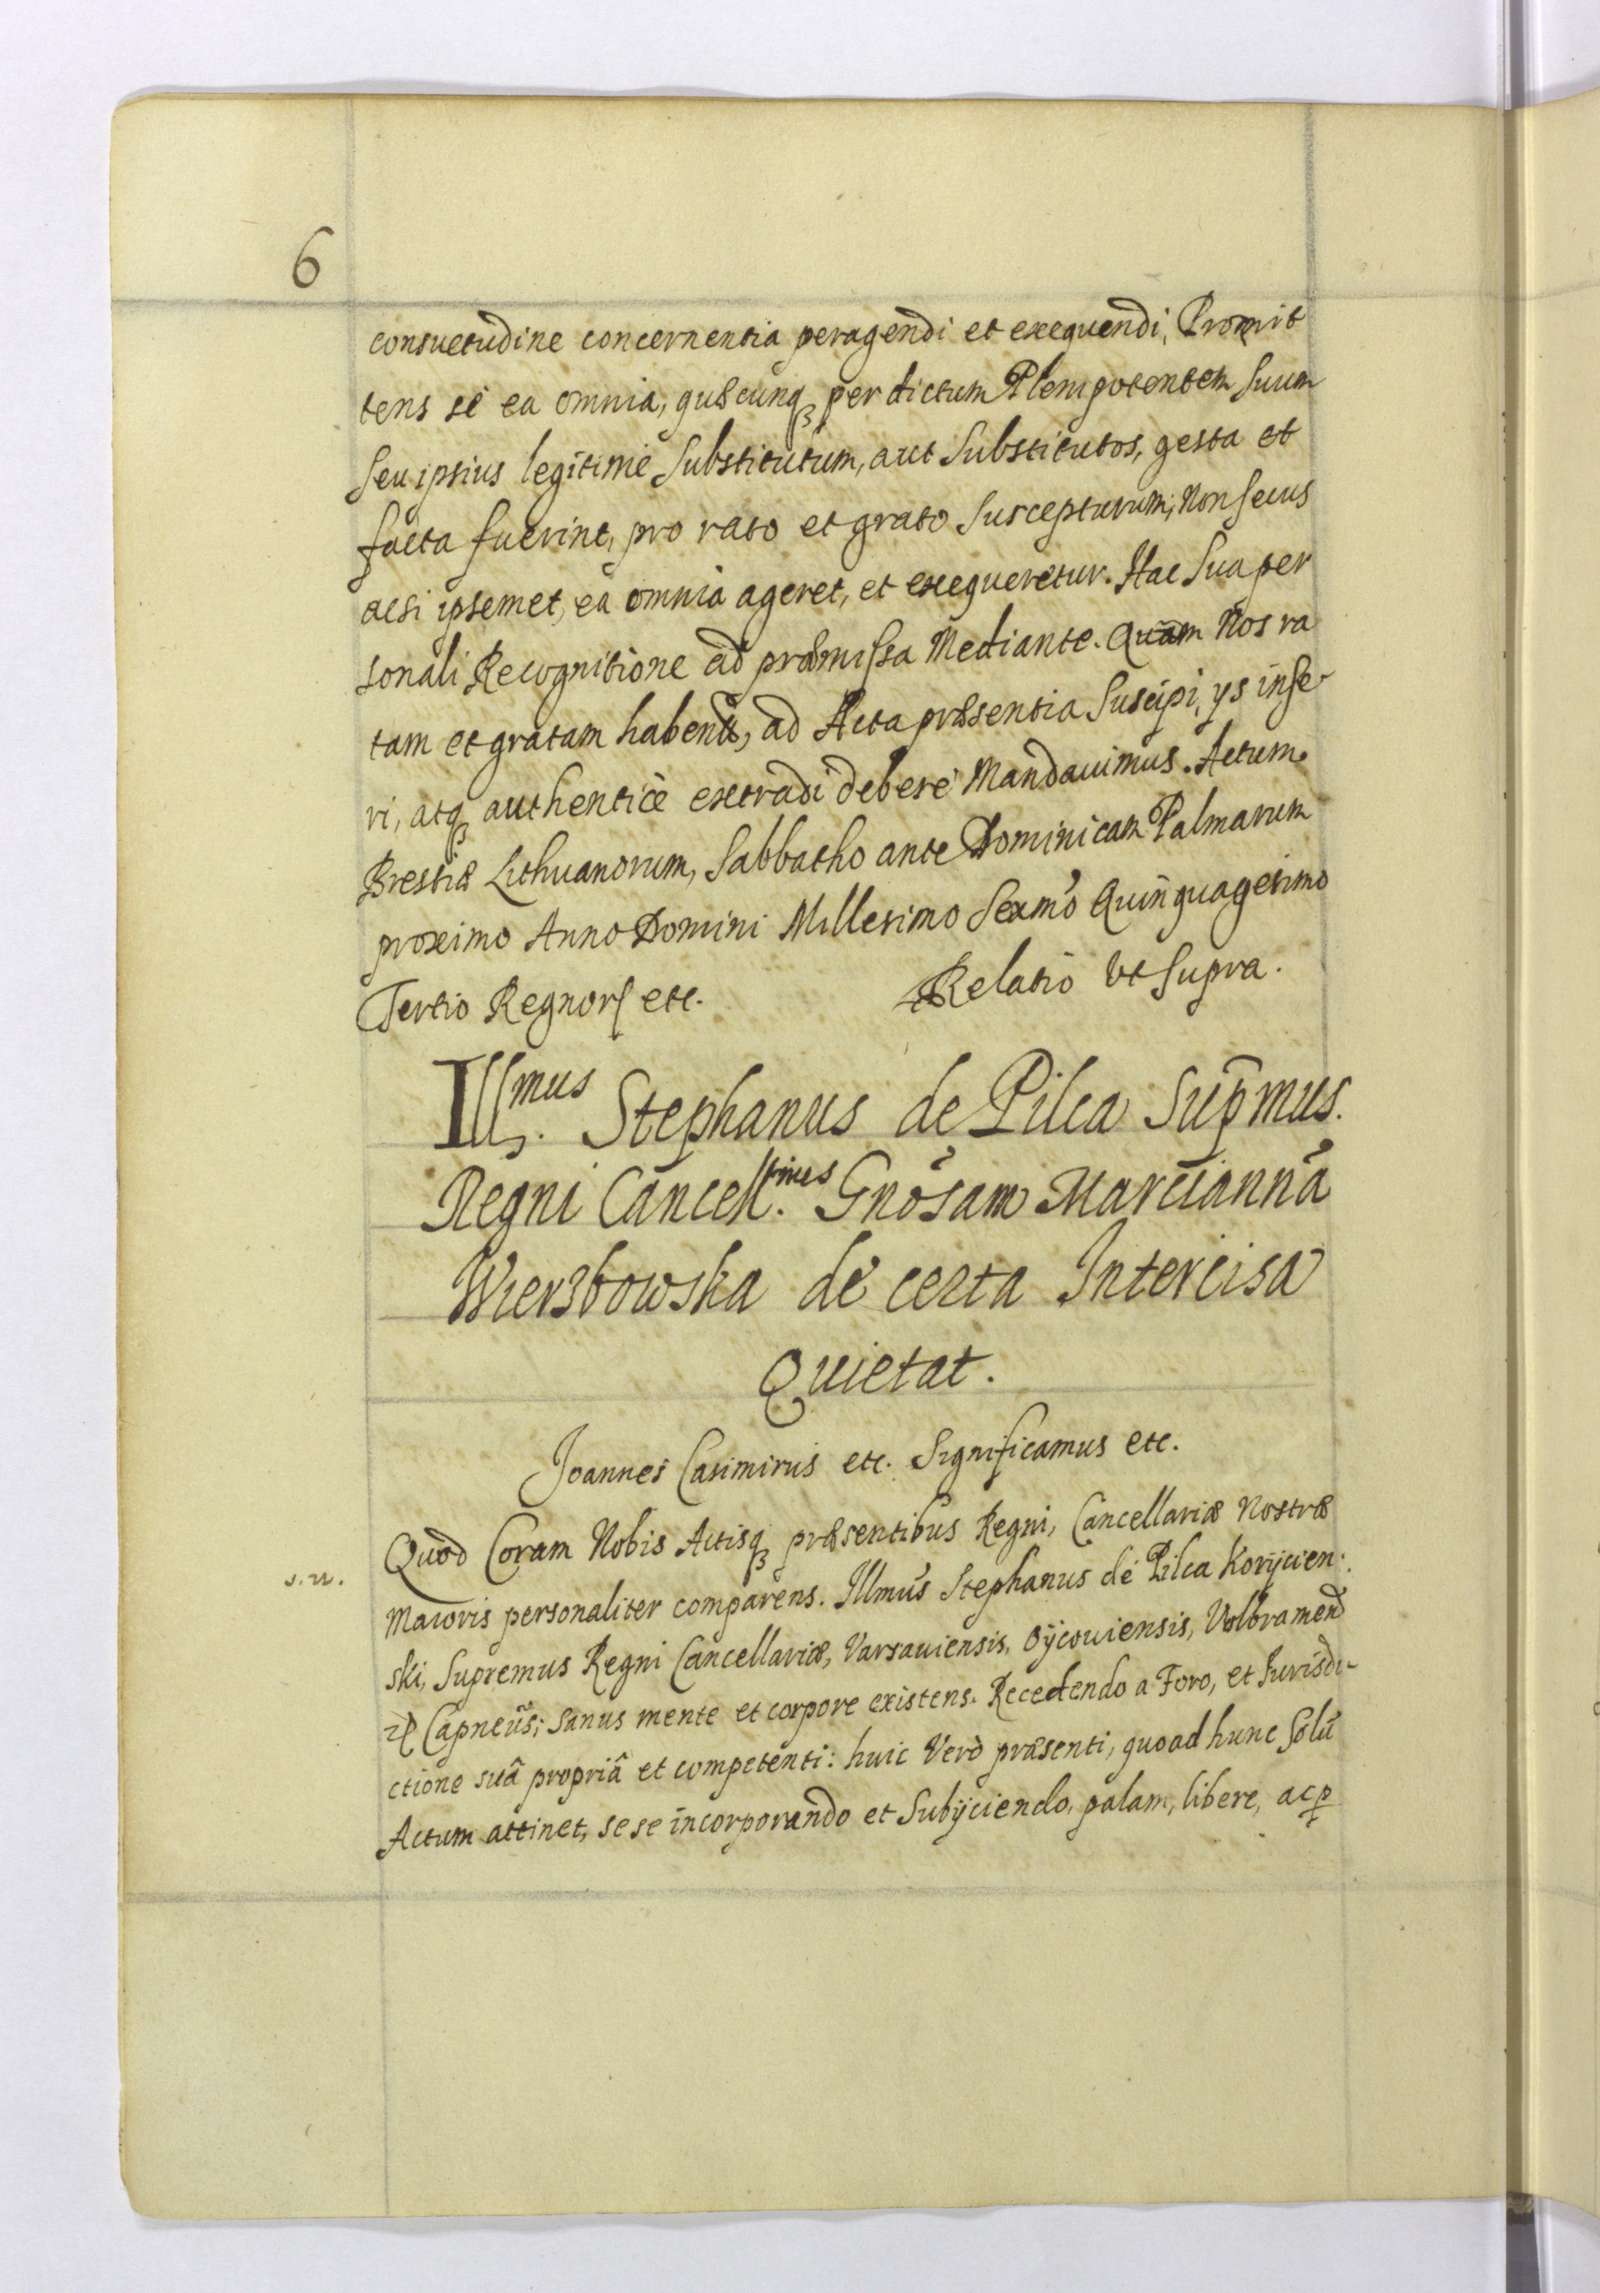 6
consuetudine concernentia peragendi et exequendi, Promit
tens sè ea omnia, quæcunqꝫ per dictum Plenipotentem Suum
Seu ipsius legitimè Substitutum, aut Substitutos, gesta et
facta fuerint, pro rato et grato Suscepturum, Non Secus
acsi ipsemet, ea omnia ageret, et exequeretur. Hac Sua per
sonali Recognitione ad præmissa Mediante. Quam Nos ra
tam et gratam haben̄, ad Acta præsentia Suscipi, ys inse
ri, atqꝫ authenticè extradi debere Mandauimus. Actum
Brestiæ Lithuanorum, Sabbatho ante Dominicam Palmarum
proximo Anno Domini Millesimo Sexm̄o Quinquagesimo
Tertio Regnorꝝ etc. Relatio Vt Supra.
Illmus. Stephanus de Pilca Sup̄mus.
Regni Cancell.rius Gnōsam Marciannā
Wierzbowska de certa Intercisa
Quietat.
Joannes Casimirus etc. Significamus etc.
Quod Coram Nobis Actisqꝫ præsentibus Regni, Cancellariæ Nostræ
s. n.
Maioris personaliter comparens. Illmūs Stephanus de Pilca Korÿcien.
ski, Supremus Regni Cancellariæ, Varsauiensis, Oÿcouiensis, Volbramen̄
ꝛꝭ Capneūs; Sanus mente et corpore existens. Recedendo a Foro, et Iurisdi-
ctione suâ propriâ et competenti: huic Verò præsenti, quoad hunc Solū
Actum attinet, sese incorporando et Subÿciendo, palam, libere, ac ꝑ